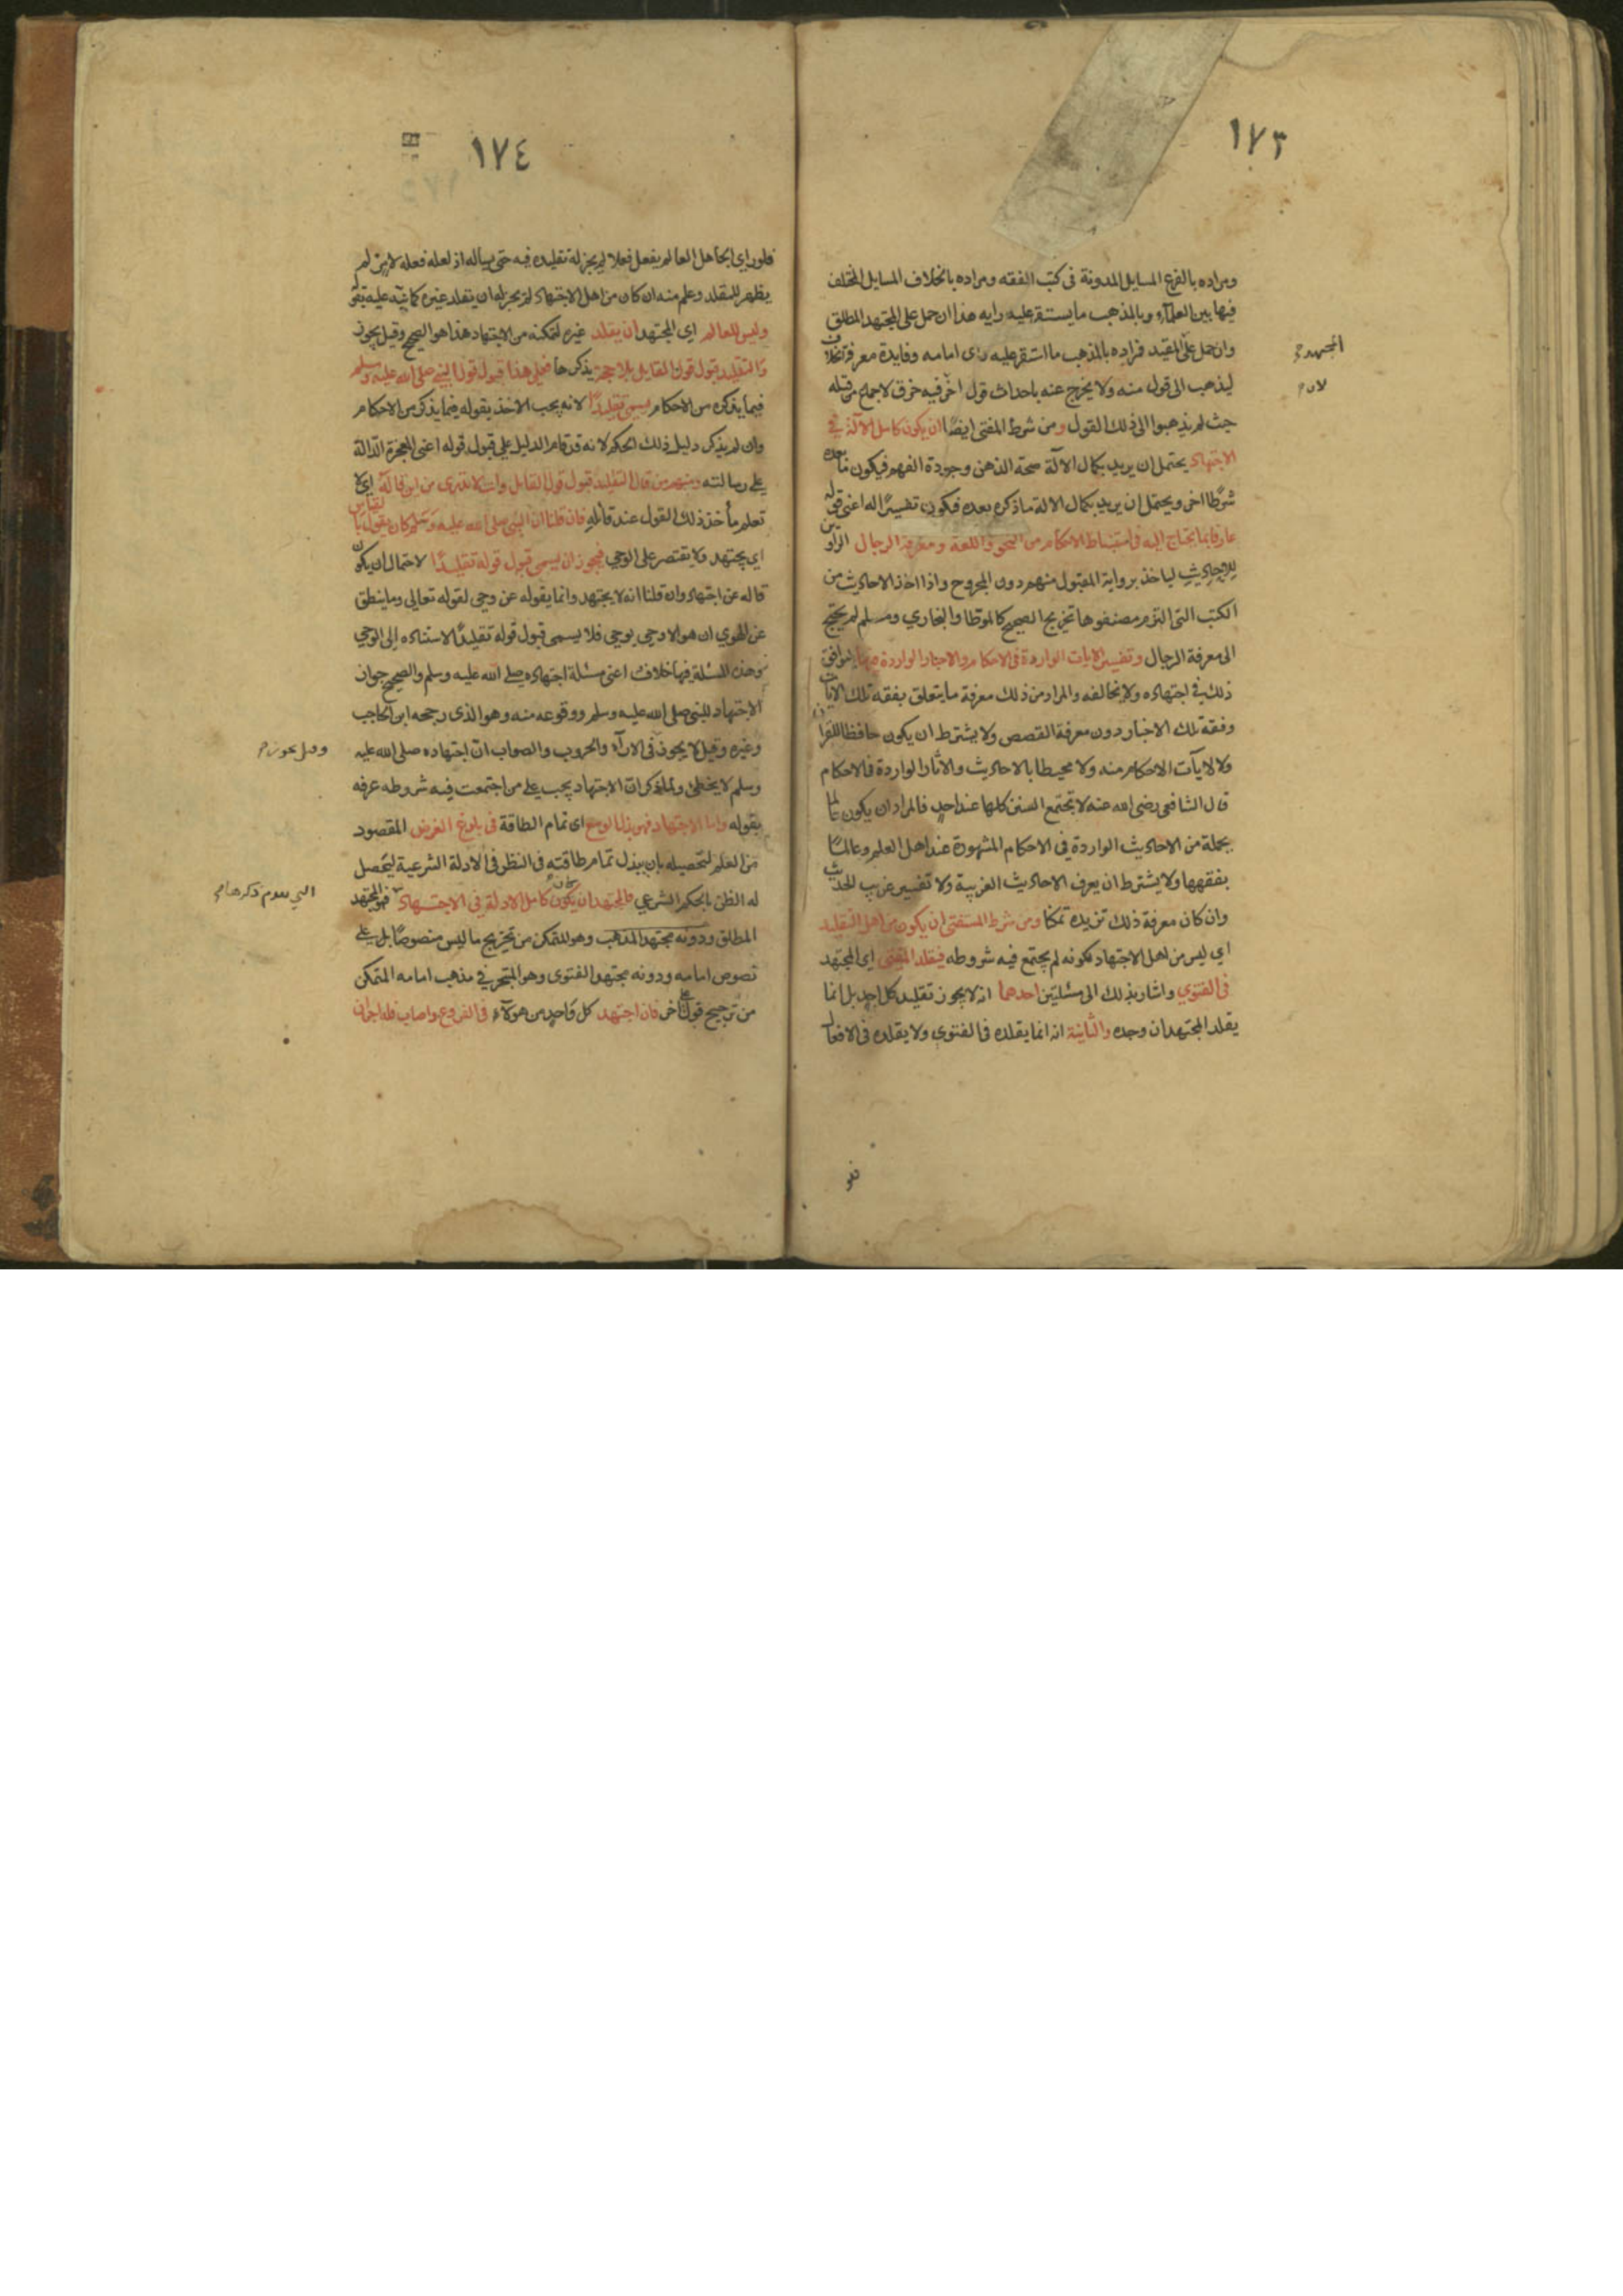 ١٧٣
ومراده بالفرع المسايل المدونة فى كتب الفقه ومراده بالخلاف المسايل المختلف
فيها بين العلمآء وبالمذهب ما يستقر عليه رايه هذا ان حمل على المجتهد المطلق
وان حمل على المقيد فراده بالمذهب ما استقر عليه راى امامه وفايدة معرفة الخلاف
المجتهد
ليذهب الى قول منه ولا يخرج عنه باحداث قول اخر فيه خرق لاجماع من قبله
لان
حيث لم يذهبوا الى ذلك القول ومن شرط المفتى ايضًا ان يكون كامل الآلة في
الاجتهاد يحتمل ان يريد بكمال الآلة صحة الذهن وجودة الفهم فيكون ما بعده
شرطًا اخر ويحتمل ان يريد بكمال الالة ما ذكره بعده فيكون تفسيرًا له اعنى قوله
عارفا بما يحتاج اليه فى استنباط الاحكام من النحو واللغة ومعرفة الرجال الراوين
للاحاديث لياخذ برواية المقبول منهم دون المجروح واذا اخذ الاحاديث من
الكتب التى التزم مصنفوها تخريج الصحيح كالموطا والبخاري ومسلم لم يحتج
الى معرفة الرجال وتفسير الايات الواردة فى الاحكام والاخبار الواردة فيها ليوافق
ذلك في اجتهاده ولا يخالفه والمراد من ذلك معرفة ما يتعلق بفقه تلك الايات
وفقه تلك الاخبار دون معرفة القصص ولا يشترط ان يكون حافظا للقران
ولا لايآت الاحكام منه ولا محيطا بالاحاديث والاثار الواردة فى الاحكام
قال الشافعى رضى الله عنه لا تجتمع السنن كلها عند احد فالمراد ان يكون عالما
بجملة من الاحاديث الواردة في الاحكام المشهورة عند اهل العلم وعالمًا
بفقهها ولا يشترط ان يعرف الاحاديث الغريبة ولا تفسير غريب الحديث
وان كان معرفة ذلك تزيده تمكنا ومن شرط المستفتى ان يكون من اهل التقليد
اي ليس من اهل الاجتهاد لكونه لم يجتمع فيه شروطه فيقلد المفتى اي المجتهد
فى الفتوي واشار بذلك الى مسئلتين احدهما انه لا يجوز تقليد كل احد بل انما
يقلد المجتهد ان وجده والثانية انه انما يقلده فى الفتوى ولا يقلده فى الافعال
فلو
١٧٤
فلو راى الجاهل العالم يفعل فعلا لم يجز له تقليده فيه حتى يساله اذ لعله فعله لامر لم
يظهر للمقلد وعلم منه ان كان من اهل الاجتهاد لم يجز له ان يقلد غيره كما نبه عليه بقوله
وليس للعالم اي المجتهد ان يقلد غيره لتمكنه من الاجتهاد هذا هو الصحيح وقيل يجوز
والتقليد قبول قول القايل بلا حجة يذكرها فعلى هذا قبول قول النبي صلى الله عليه وسلم
فيما يذكره من الاحكام يسمى تقليدًا لانه يجب الاخذ بقوله فيما يذكر من الاحكام
وان لم يذكر دليل ذلك الحكم لانه قد قام الدليل على قبول قوله اعنى المعجزة الدالة
على رسالته ومنهم من قال التقليد قبول قول القايل وانت لا تدرى من اين قاله اي لا
تعلم مأخذ ذلك القول عند قائله فان قلنا ان النبي صلى الله عليه وسلم كان يقول بالقياس
اي يجتهد ولا يقتصر على الوحي فيجوز ان يسمى قبول قوله تقليدًا لاحتمال ان يكون
قاله عن اجتهاد وان قلنا انه لا يجتهد وانما يقوله عن وحي لقوله تعالى وما ينطق
عن الهوي ان هو الا وحي يوحي فلا يسمى قبول قوله تقليدًا لاستناده الى الوحي
وهذه المسئلة فيها خلاف اعنى مسئلة اجتهاده صلى الله عليه وسلم والصحيح جواز
الاجتهاد للنبى صلى الله عليه وسلم ووقوعه منه وهو الذى رجحه ابن الحاجب
وغيره وقيل لا يجوز فى الارآء والحروب والصواب ان اجتهاده صلى الله عليه
وقيل يجوز
وسلم لا يخطئ ولما ذكر ان الاجتهاد يجب على من اجتمعت فيه شروطه عرفه
بقوله واما الاجتهاد فهو بذل الوسع اى تمام الطاقة فى بلوغ الغرض المقصود
من العلم لتحصيله بان يبذل تمام طاقته فى النظر فى الادلة الشرعية ليتحصل
له الظن بالحكم الشرعي فالمجتهد ان يكون كامل الادلة فى الاجتهاد فهو المجتهد
التي تقدم ذكرها
المطلق ودونه مجتهد المذهب وهو المتمكن من تخريج ما ليس منصوصًا بل على
نصوص امامه ودونه مجتهد الفتوى وهو المتبحر في مذهب امامه المتمكن
من ترجيح قول على اخر فان اجتهد كل واحد من هؤلاء فى الفروع واصاب فله اجران